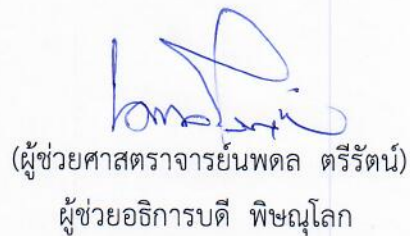 (ผู้ช่วยศาสตราจารย์นพดล ตรีรัตน์)
ผู้ช่วยอธิการบดี พิษณุโลก